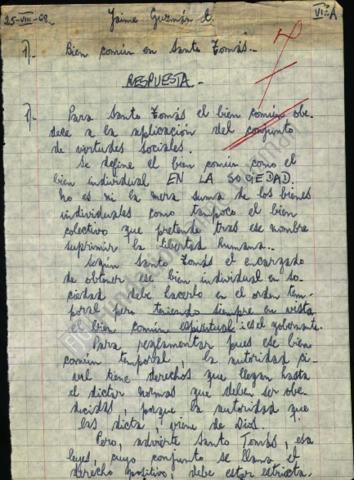 25-VIII-62 Jaime Guzmán E. VI-A
7
1) Bien común en Santo Tomás.-
RESPUESTA.-
1) Para Santo Tomás el bien común obe-
dece a la aplicación del conjunto
de verdades sociales.
Se define el bien común como el
bien individual EN LA SOCIEDAD.
No es ni la mera suma de los bienes
individuales como tampoco el bien
colectivo que pretende tras ese nombre
suprimir la libertad humana.
Según Santo Tomás el encargado
de obtener ese bien individual en so-
ciedad debe hacerlo en el orden tem-
poral pero teniendo siempre en vista
el bien común espiritual: es el gobernante.
Para reglamentar pues ese bien
común temporal, la autoridad ci-
vil tiene derechos que llegan hasta
el dictar normas que deben ser obe-
decidas, porque la autoridad que
las dicta, viene de Dios.
Pero, advierte Santo Tomás, esas
leyes, cuyo conjunto se llama el
derecho positivo, debe estar estricta-